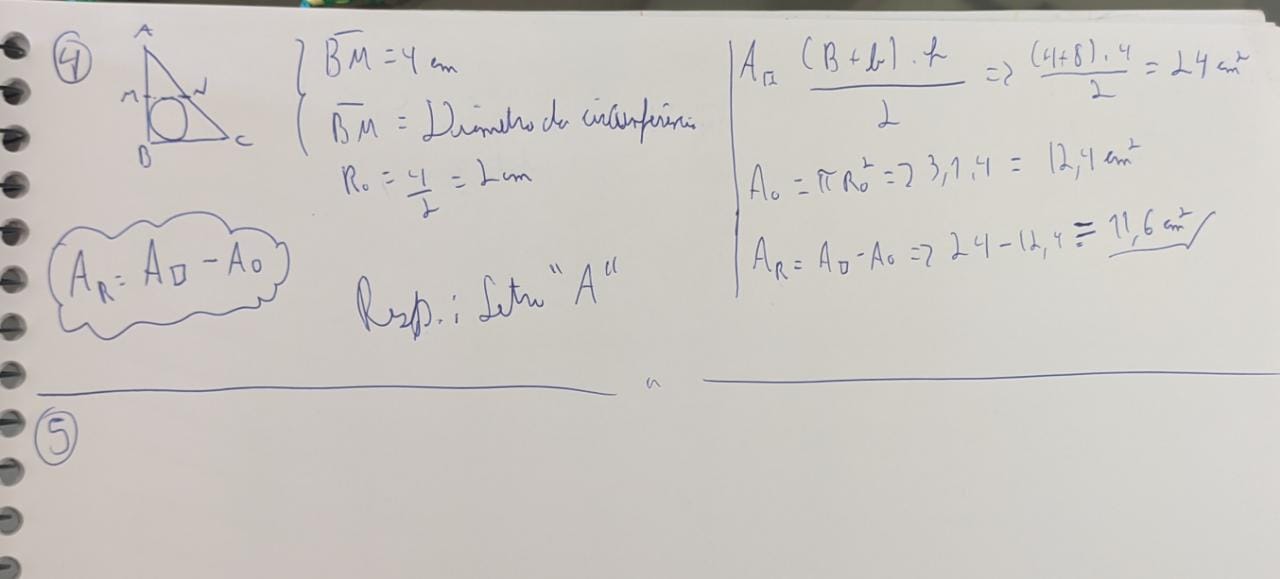 4
A
M N
B C
BM = 4 cm
BM = Diâmetro da circunferência
R₀ = 4/2 = 2 cm
A_R = A▱ - A₀
Resp.: Letra "A"
A▱ (B+b).h/2 => (4+8).4/2 = 24 cm²
A₀ = πR₀² => 3,1.4 = 12,4 cm²
A_R = A▱ - A₀ => 24 - 12,4 = 11,6 cm²
5